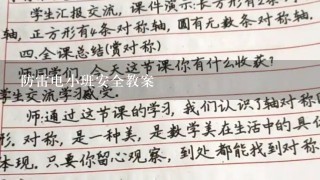 学生汇报交流,课件演示:长方形有2条对称
轴,正方形有4条对称轴,圆有无数条对称轴.
四.全课总结(赏对称)
今天这节课你有什么收获?
防雷电小班安全教案
学生交流学习感受.
师:通过这节课的学习,我们认识了轴对称图
形.对称,是一种美,是数学美在生活中的具体
体现.只要你留心观察,到处都能找到对称